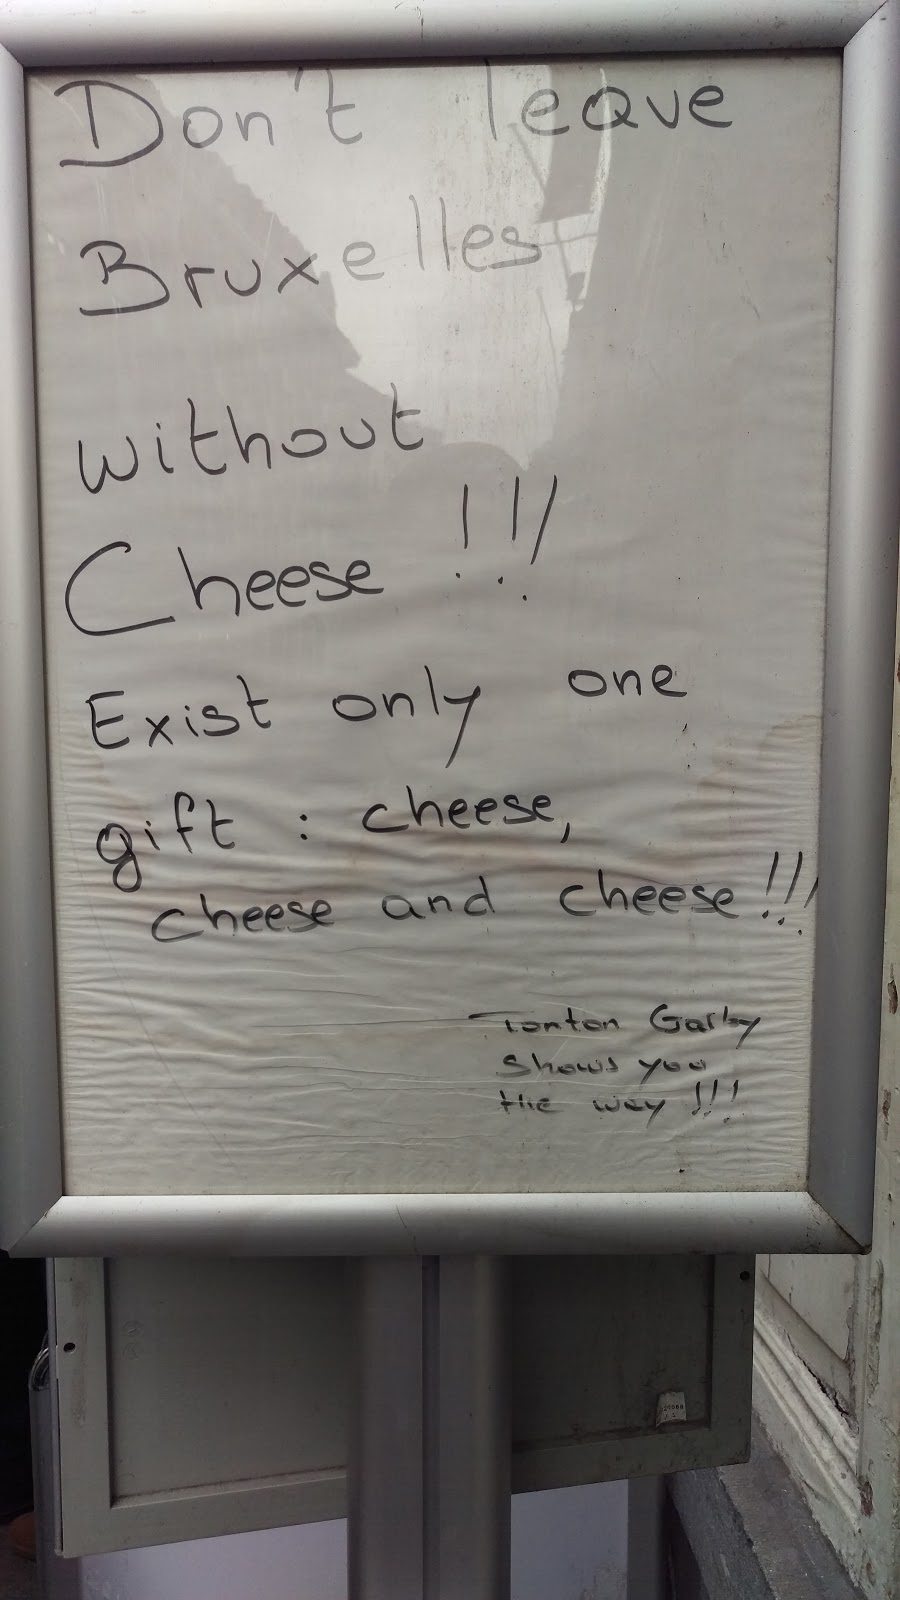 Don't leave
Bruxelles
without
Cheese !!!
Exist only one
gift : cheese,
cheese and cheese !!!
Tonton Garby
shows you
the way !!!